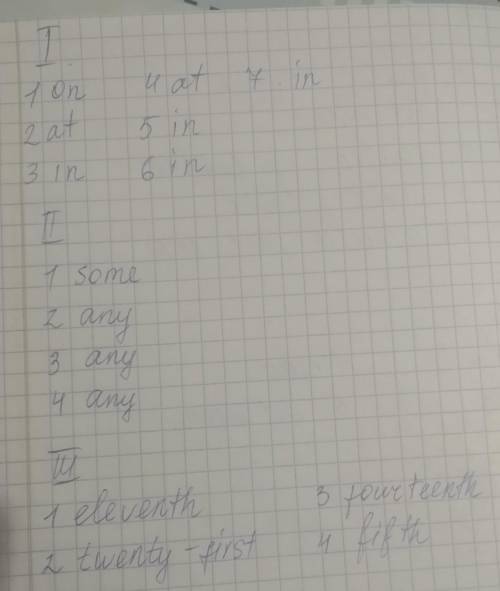 I
1 on 4 at 7 in
2 at 5 in
3 in 6 in
II
1 some
2 any
3 any
4 any
III
1 eleventh 3 fourteenth
2 twenty-first 4 fifth